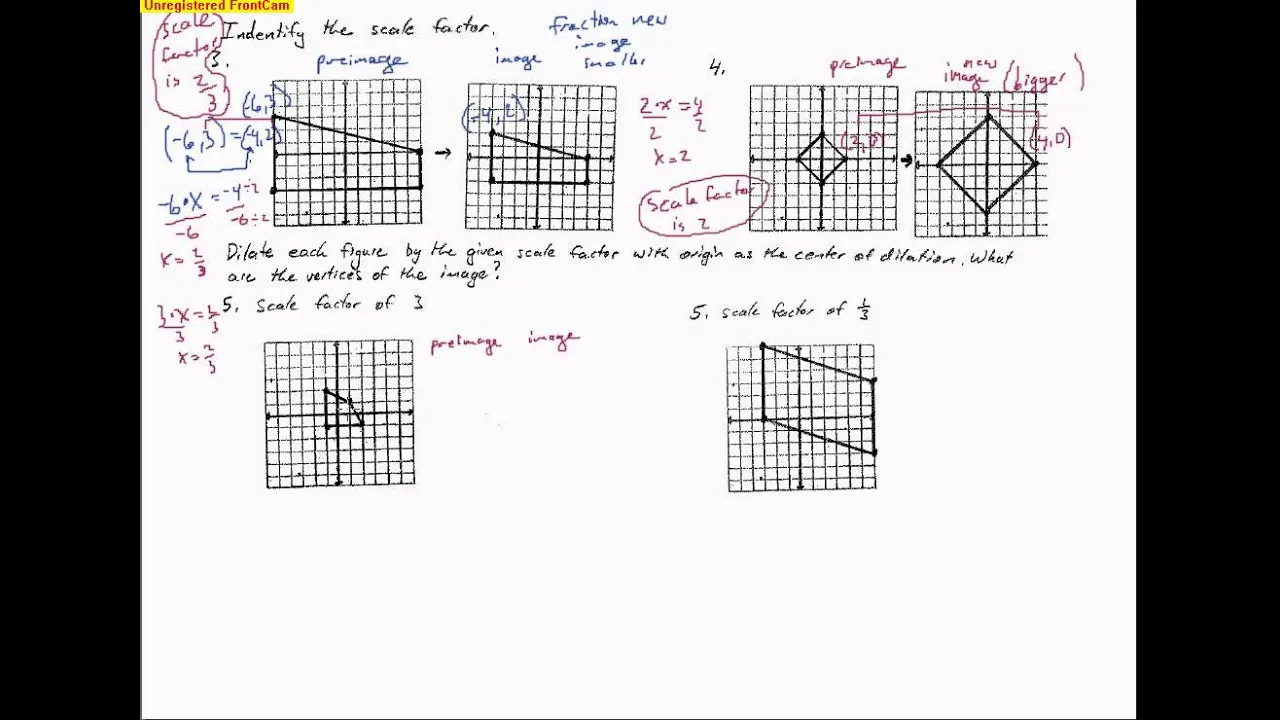 Unregistered FrontCam
Indentify the scale factor.
fraction new
image
smaller
scale
factor
is 2/3
3.
preimage
image
(-6,3)
(-4,2)
(-6,3) = (-4,2)
-6·x = -4 ÷2
-6 -6 ÷2
x = 2/3
3·x = 2
3 3
x = 2/3
2·x = 4
2 2
x = 2
scale factor
is 2
4.
preimage
new
image (bigger)
(2,0)
(4,0)
Dilate each figure by the given scale factor with origin as the center of dilation. What
are the vertices of the image?
5. scale factor of 3
preimage image
5. scale factor of 1/3